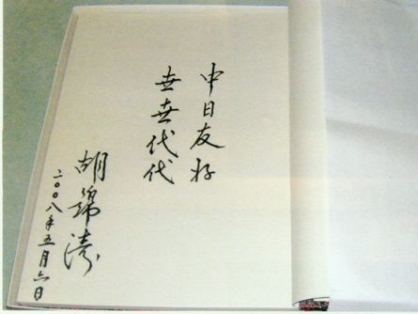 中日友好
世世代代
胡锦涛
二〇〇八年五月六日